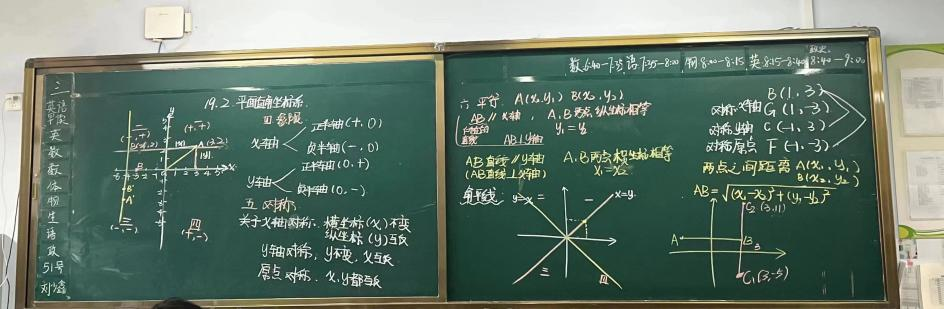 三
英语
早读
英
数
数
体
物
生
语
政
51号
19.2 平面直角坐标系
二
(-,+)
(+,+)
A(3,2)
三
(-,-)
四
(+,-)
x轴
正半轴(+,0)
负半轴(-,0)
y轴
正半轴(0,+)
负半轴(0,-)
五 对称
关于x轴对称、横坐标(x)不变
纵坐标(y)互反
y轴对称,y不变,x互反
原点对称、x,y都互反
数6:40-7:35 语7:35-8:00 物8:00-8:15 英8:15-8:40 政史8:40-9:00
六 平行、A(x₁,y₁) B(x₂,y₂)
AB∥x轴,A,B两点纵坐标相等
AB⊥y轴
y₁=y₂
AB直线∥y轴 A、B两点横坐标相等
(AB直线⊥x轴) x₁=x₂
角平分线
y=-x
x=y
一
二
三
四
B(1,3)
对称x轴 G(1,-3)
对称y轴 C(-1,3)
对称原点 F(-1,-3)
两点之间距离 A(x₁,y₁)
B(x₂,y₂)
AB=√(x₁-x₂)²+(y₁-y₂)²
C₂(3,11)
A
B
3
C₁(3,-5)